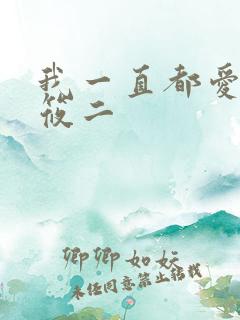 我一直都愛
筱二
卿卿如妘
未经同意禁止转载